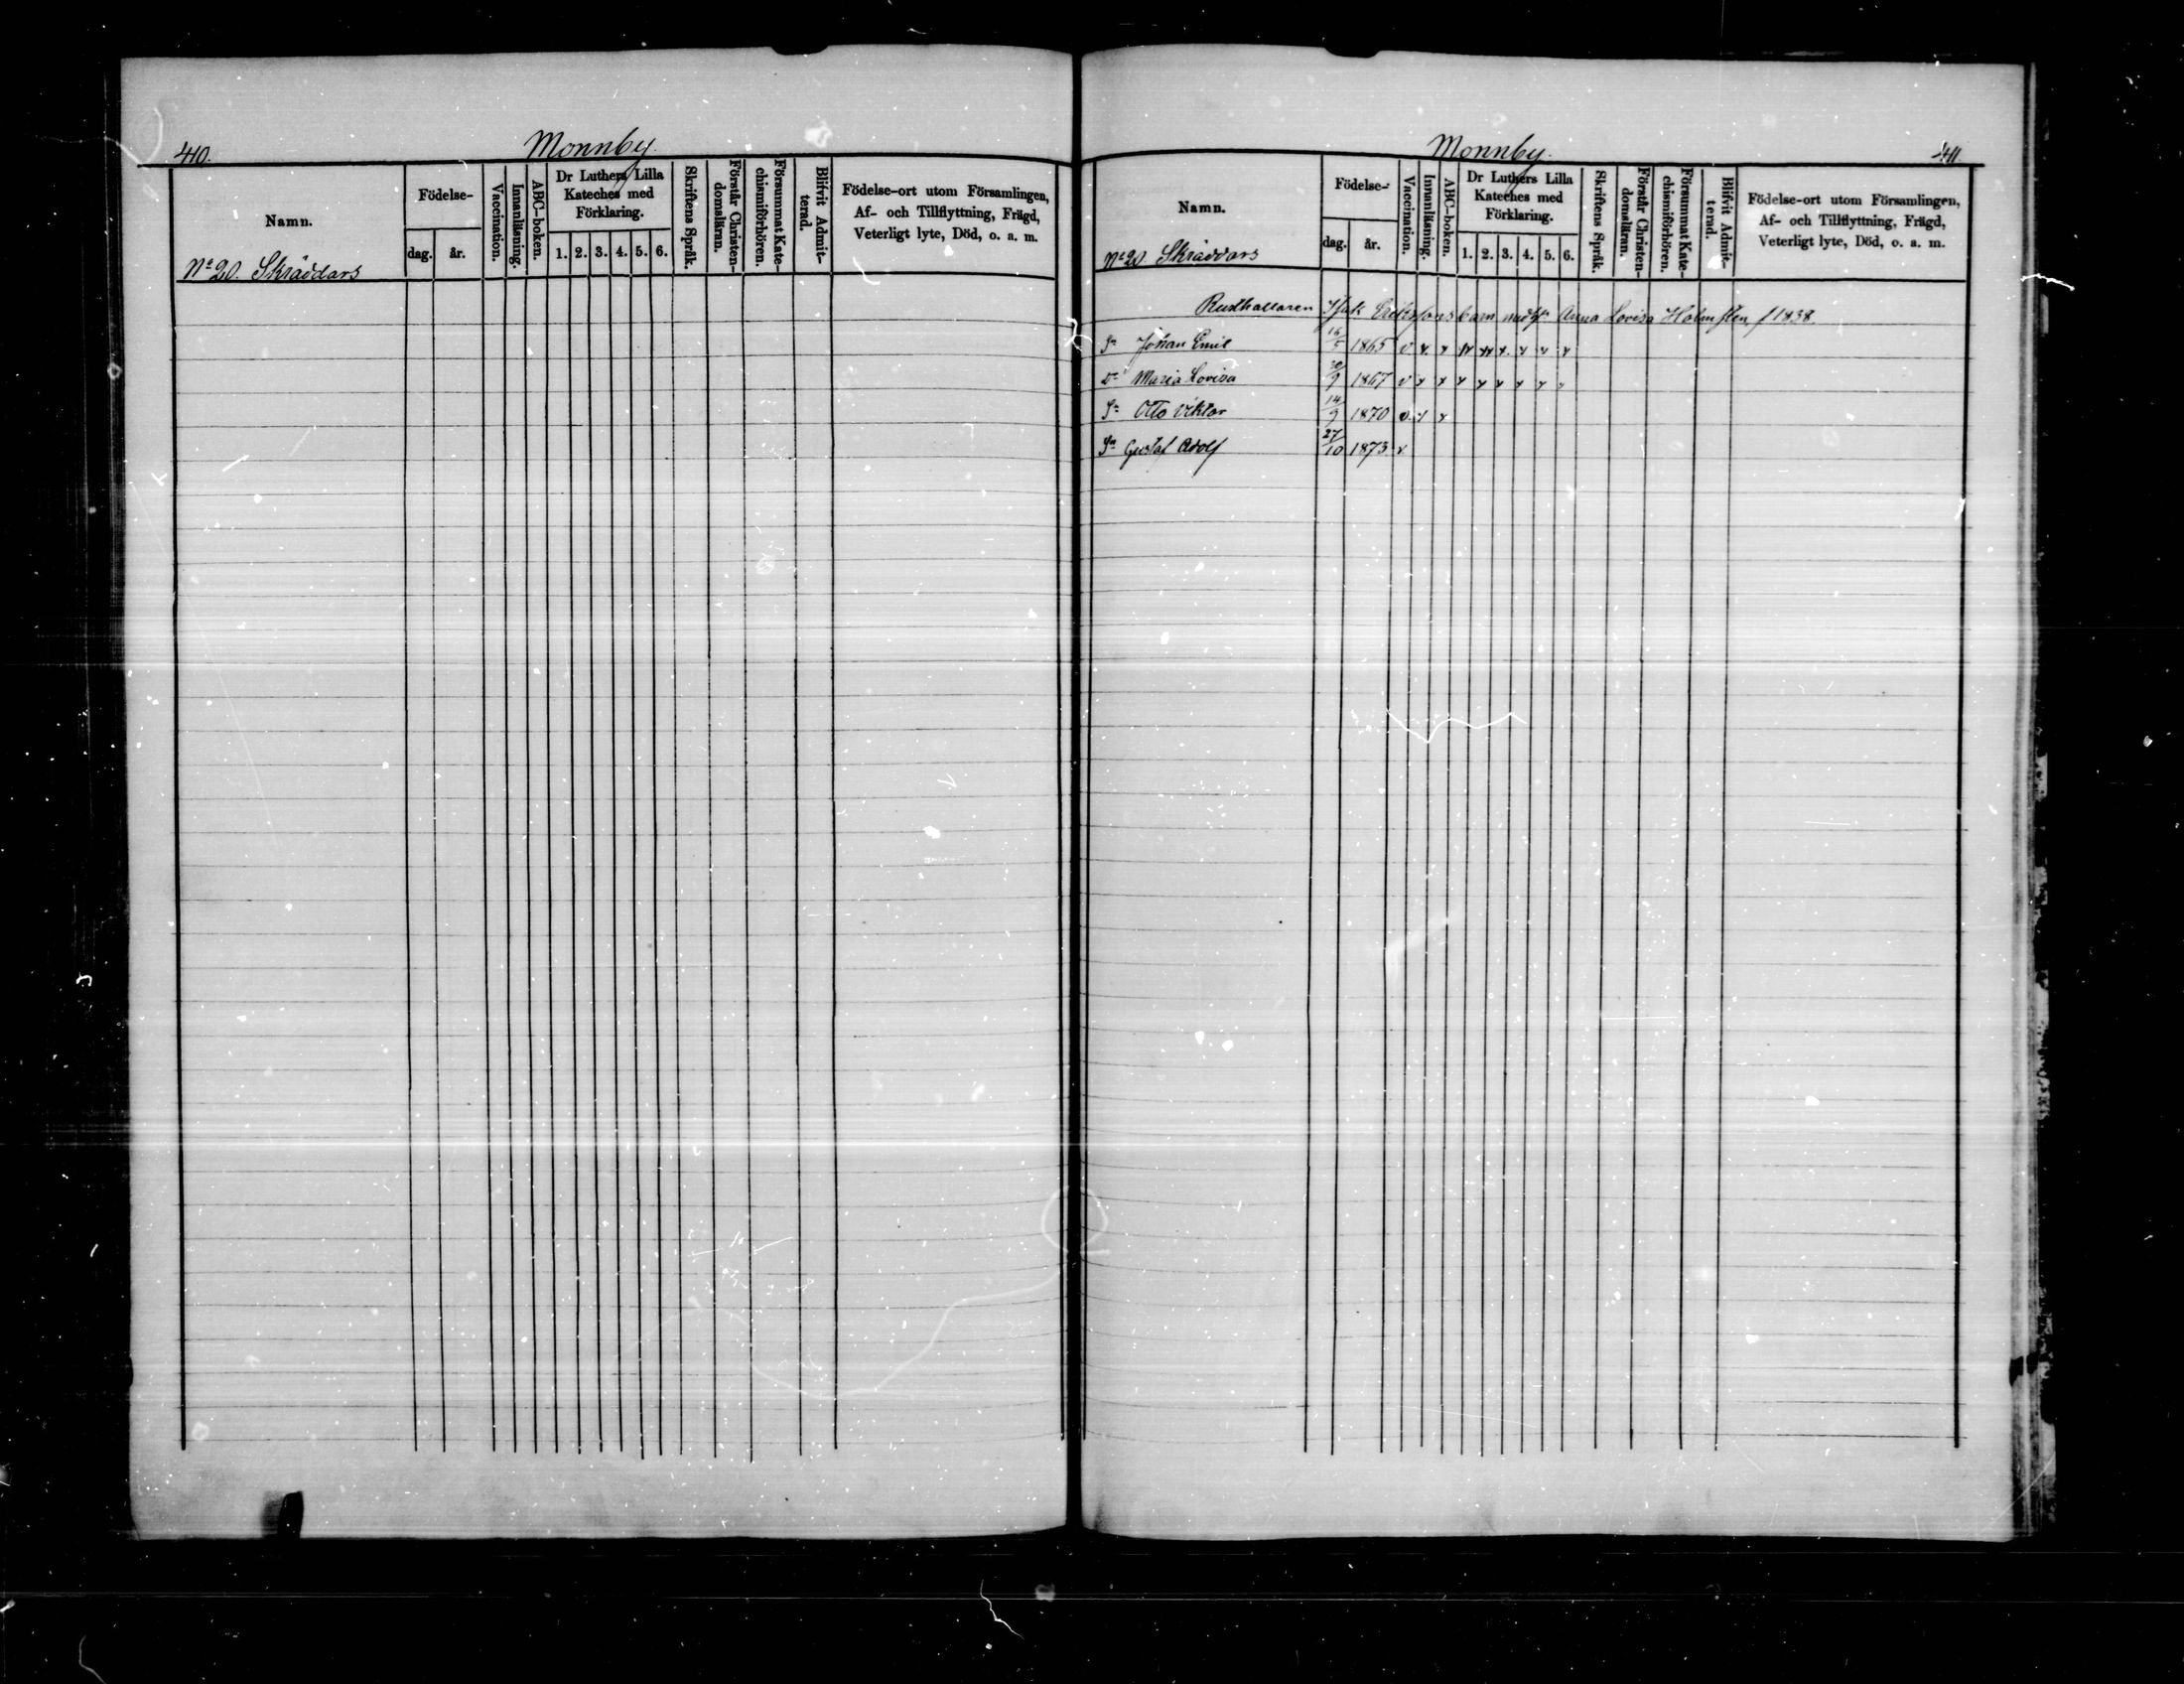 410.
Monnby.
Namn.
Födelse-
dag.
år.
Vaccination.
Innanläsning.
ABC-boken.
Dr Luthers Lilla
Kateches med
Förklaring.
1. 2. 3. 4. 5. 6.
Skriftens Språk.
Förstår Christen-
domsläran.
Försummat Kate-
chismiförhören.
Blifvit Admit-
terad.
Födelse-ort utom Församlingen,
Af- och Tillflyttning, Frägd,
Veterligt lyte, Död, o. a. m.
No 20. Skräddars
Monnby.
411.
Namn.
Födelse-
dag.
år.
Vaccination.
Innanläsning.
ABC-boken.
Dr Luthers Lilla
Kateches med
Förklaring.
1. 2. 3. 4. 5. 6.
Skriftens Språk.
Förstår Christen-
domsläran.
Försummat Kate-
chismiförhören.
Blifvit Admit-
terad.
Födelse-ort utom Församlingen,
Af- och Tillflyttning, Frägd,
Veterligt lyte, Död, o. a. m.
No 20 Skräddars
Rusthållaren Isak Erikssons barn med Anna Lovisa Holmsten, f 1838.
Sn Johan Emil 1865 v
Dr Maria Lovisa 1867 v
Sn Otto Viktor 14/9 1870 v.
Sn Gustaf Adolf 27/10 1873 v